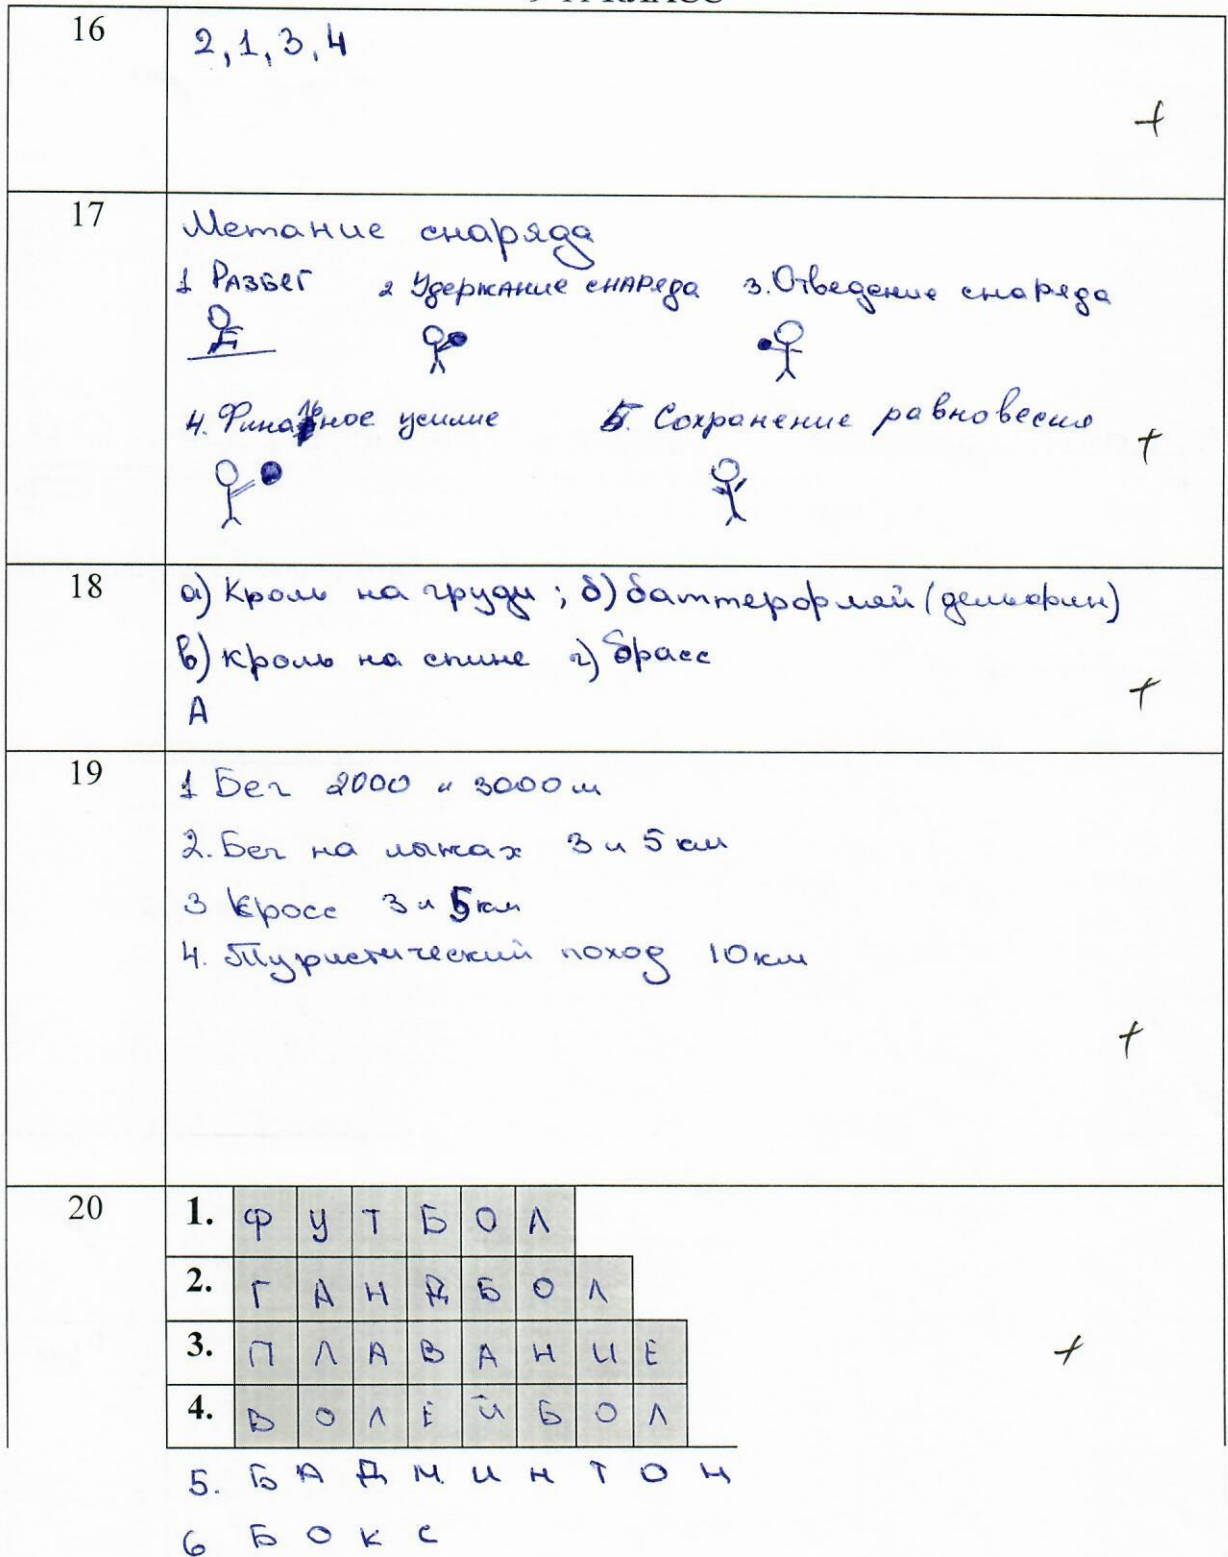 16
2, 1, 3, 4
+
17
Метание снаряда
1 Разбег 2 Удержание снаряда 3. Отведение снаряда
4. Финальное усилие 5. Сохранение равновесия
+
18
а) Кроль на груди ; б) баттерфляй (дельфин)
в) кроль на спине г) брасс
А
+
19
1 Бег 2000 и 3000 м
2. Бег на лыжах 3 и 5 км
3 Кросс 3 и 5 км
4. Туристический поход 10 км
+
20
1. ФУТБОЛ
2. ГАНДБОЛ
3. ПЛАВАНИЕ
+
4. ВОЛЕЙБОЛ
5. БАДМИНТОН
6 БОКС